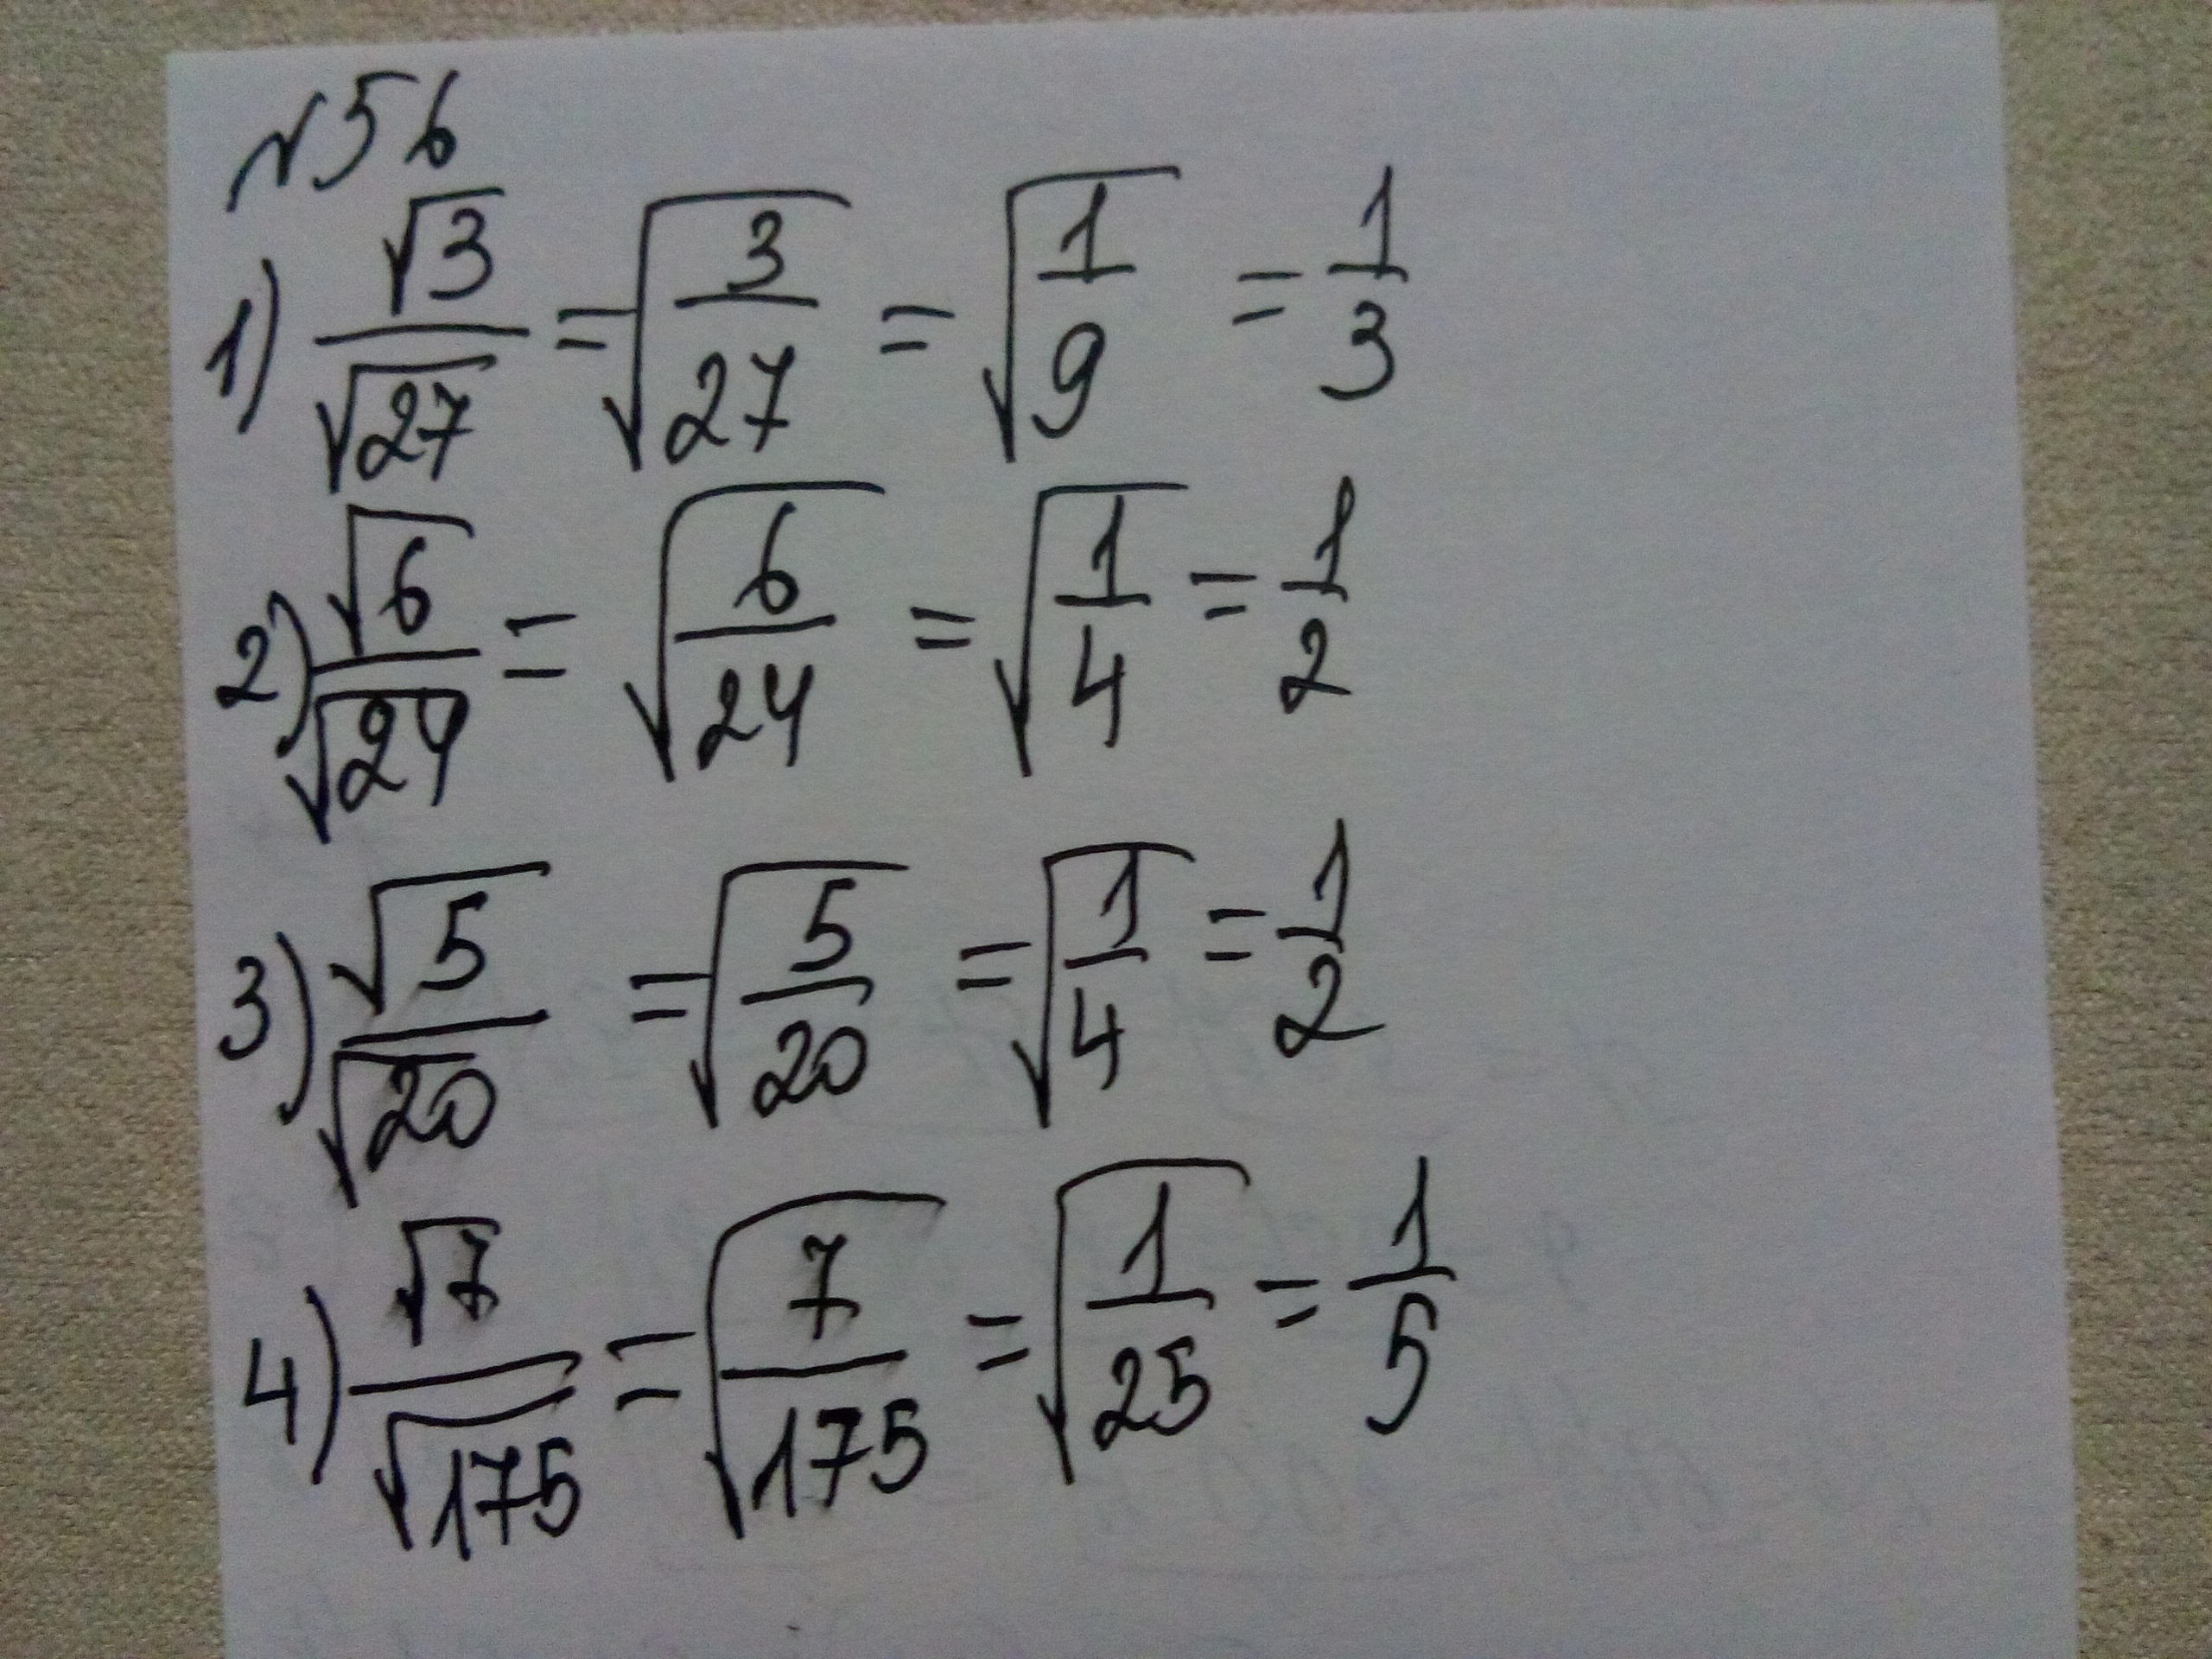 №56
1) √3/√27 = √(3/27) = √(1/9) = 1/3
2) √6/√24 = √(6/24) = √(1/4) = 1/2
3) √5/√20 = √(5/20) = √(1/4) = 1/2
4) √7/√175 = √(7/175) = √(1/25) = 1/5